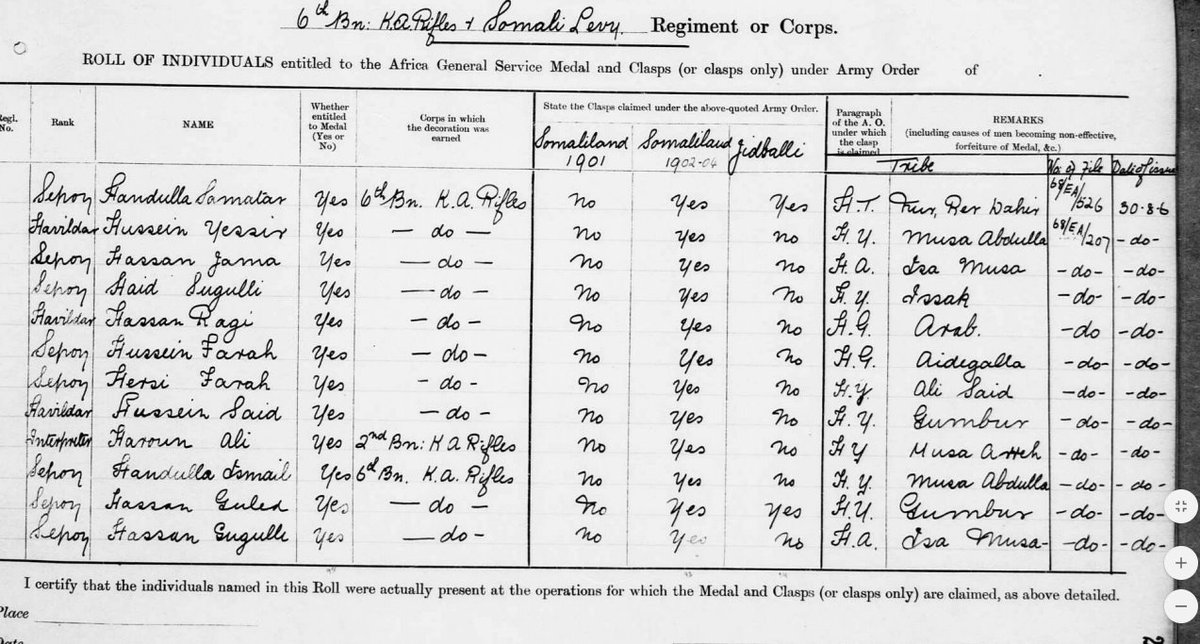 6th Bn: K.A. Rifles & Somali Levy. Regiment or Corps.
ROLL OF INDIVIDUALS entitled to the Africa General Service Medal and Clasps (or clasps only) under Army Order of .
Regl. No. Rank NAME Whether entitled to Medal (Yes or No) Corps in which the decoration was earned State the Clasps claimed under the above-quoted Army Order. Paragraph of the A. O. under which the clasp is claimed REMARKS (including causes of men becoming non-effective, forfeiture of Medal, &c.)
Somaliland 1901 Somaliland 1902-04 Jidballi Tribe No: of File Date of issue
Sepoy Handulla Samatar Yes 6th Bn. K.A. Rifles No Yes Yes H.T. Nur, Rer Dahir 68/EA/526 30.8.6
Havildar Hussein Yessir Yes — do — No Yes No H.Y. Musa Abdulla 68/EA/207 -do-
Sepoy Hassan Jama Yes — do — No Yes No H.A. Isa Musa -do- -do-
Sepoy Haid Sugulli Yes — do — No Yes No H.Y. Issak -do- -do-
Havildar Hassan Ragi Yes — do — No Yes No H.G. Arab. -do -do-
Sepoy Hussein Farah Yes — do — No Yes No H.G. Aidegalla -do- -do-
Sepoy Hersi Farah Yes - do - No Yes No H.Y. Ali Said -do- -do-
Havildar Hussein Said Yes — do - No Yes No H.Y. Gumbur -do- -do-
Interpreter Haroun Ali Yes 2nd Bn: K A Rifles No Yes No H Y Musa Arreh -do- -do-
Sepoy Handulla Ismail Yes 6th Bn. K.A. Rifles No Yes No H.Y. Musa Abdulla -do- -do-
Sepoy Hassan Guled Yes — do — No Yes Yes H.Y. Gumbur -do- -do-
Sepoy Hassan Gugulle Yes — do - No Yes No H.A. Isa Musa- -do- -do-
I certify that the individuals named in this Roll were actually present at the operations for which the Medal and Clasps (or clasps only) are claimed, as above detailed.
Place
Date